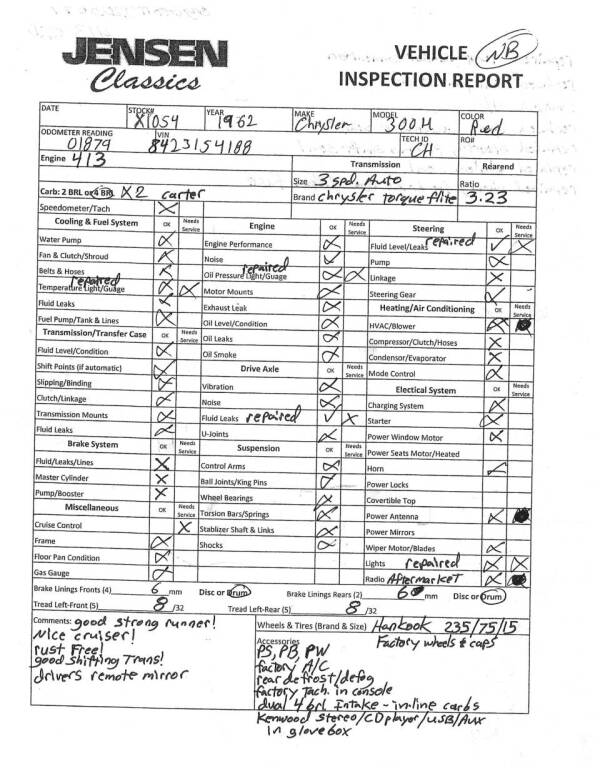 JENSEN
Classics
VEHICLE
NB
INSPECTION REPORT
DATE STOCK# X1054 YEAR 1962 MAKE Chrysler MODEL 300H COLOR Red
ODOMETER READING 01879 VIN 8423154188 TECH ID CH RO#
Engine 413 Transmission Rearend
Size 3 spd. Auto Ratio
Carb: 2 BRL or 4 BRL X2 carter Brand chrysler torqueflite 3.23
Speedometer/Tach
Cooling & Fuel System OK Needs Service
Water Pump
Fan & Clutch/Shroud
Belts & Hoses
repaired
Temperature Light/Guage
Fluid Leaks
Fuel Pump/Tank & Lines
Transmission/Transfer Case OK Needs Service
Fluid Level/Condition
Shift Points (if automatic)
Slipping/Binding
Clutch/Linkage
Transmission Mounts
Fluid Leaks
Brake System OK Needs Service
Fluid/Leaks/Lines
Master Cylinder
Pump/Booster
Miscellaneous OK Needs Service
Cruise Control
Frame
Floor Pan Condition
Gas Gauge
Engine OK Needs Service
Engine Performance
Noise
repaired
Oil Pressure Light/Guage
Motor Mounts
Exhaust Leak
Oil Level/Condition
Oil Leaks
Oil Smoke
Drive Axle OK Needs Service
Vibration
Noise
Fluid Leaks repaired
U-Joints
Suspension OK Needs Service
Control Arms
Ball Joints/King Pins
Wheel Bearings
Torsion Bars/Springs
Stablizer Shaft & Links
Shocks
Steering OK Needs Service
Fluid Level/Leaks repaired
Pump
Linkage
Steering Gear
Heating/Air Conditioning OK Needs Service
HVAC/Blower
Compressor/Clutch/Hoses
Condensor/Evaporator
Mode Control
Electical System OK Needs Service
Charging System
Starter
Power Window Motor
Power Seats Motor/Heated
Horn
Power Locks
Covertible Top
Power Antenna
Power Mirrors
Wiper Motor/Blades
Lights repaired
Radio Aftermarket
Brake Linings Fronts (4) 6 mm Disc or Drum Brake Linings Rears (2) 6 mm Disc or Drum
Tread Left-Front (5) 8 /32 Tread Left-Rear (5) 8 /32
Comments: good strong runner!
Nice cruiser!
rust Free!
good shifting Trans!
drivers remote mirror
Wheels & Tires (Brand & Size) Hankook 235/75/15
Factory wheels & caps
Accessories
PS, PB, PW
factory A/C
rear defrost/defog
factory Tach. in console
dual 4 brl Intake - in-line carbs
Kenwood stereo/CD player/USB/Aux
in glovebox